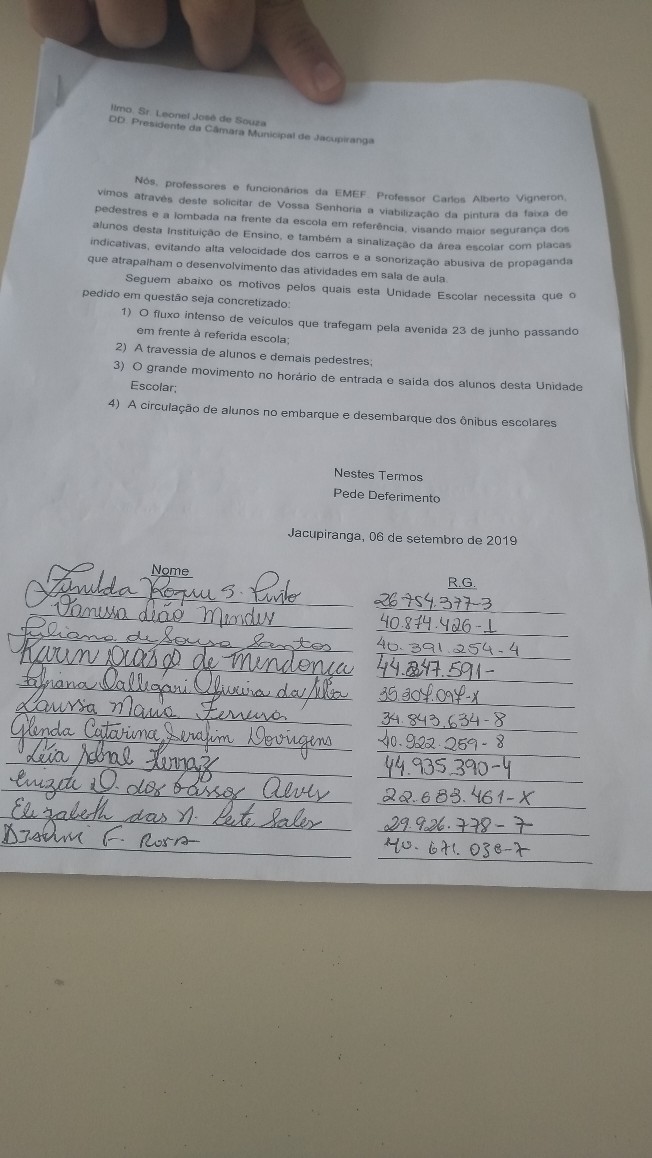 Ilmo. Sr. Leonel José de Souza
DD. Presidente da Câmara Municipal de Jacupiranga
Nós, professores e funcionários da EMEF. Professor Carlos Alberto Vigneron,
vimos através deste solicitar de Vossa Senhoria a viabilização da pintura da faixa de
pedestres e a lombada na frente da escola em referência, visando maior segurança dos
alunos desta Instituição de Ensino, e também a sinalização da área escolar com placas
indicativas, evitando alta velocidade dos carros e a sonorização abusiva de propaganda
que atrapalham o desenvolvimento das atividades em sala de aula.
Seguem abaixo os motivos pelos quais esta Unidade Escolar necessita que o
pedido em questão seja concretizado:
1) O fluxo intenso de veículos que trafegam pela avenida 23 de junho passando
em frente à referida escola;
2) A travessia de alunos e demais pedestres;
3) O grande movimento no horário de entrada e saída dos alunos desta Unidade
Escolar;
4) A circulação de alunos no embarque e desembarque dos ônibus escolares
Nestes Termos
Pede Deferimento
Jacupiranga, 06 de setembro de 2019
Nome R.G.
Roque S. Pinto 26 754.377-3
Vanessa Mendes 40.874.426-1
Juliana de Sousa Santos 40.391.254-4
Karin de Mendonça 44.847.591-
Fabiana Callegari Oliveira da Silva
Larissa Maria Ferreira 34.843.634-8
Glenda Catarina Serafim 40.922.259-8
Léia Ferraz 44.935.390-4
dos Passos Alves 22.683.461-X
Elizabeth das N. Leite Sales 29.926.778-7
F. Rosa